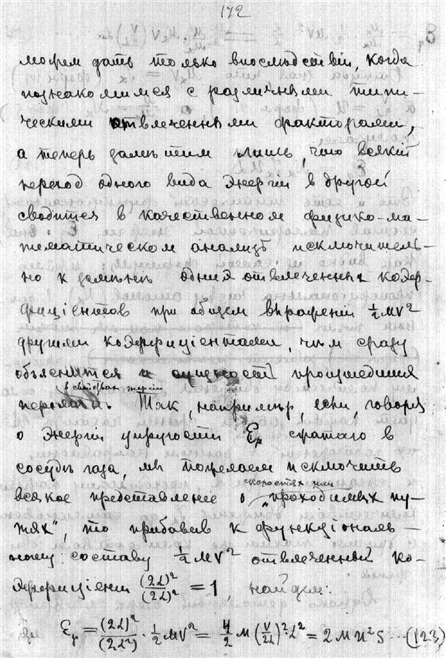 172
можем дать только впоследствіи, когда
познакомимся с различными типи-
ческими отвлеченными факторами,
а теперь заметим лишь, что всякій
переход одного вида энергіи в другой
сводится в качественном физико-ма-
тематическом анализѣ исключитель-
но к замѣнѣ одних отвлеченных коэф-
фиціентов при общем выраженіи ½MV²
другими коэффиціентами, чѣм сразу
объясняется и сущность происшедших
в свойствах энергіи
перемѣн. Так, напримѣр, если, говоря
о энергіи упругости Eᵣ сжатаго в
сосудѣ газа, мы пожелаем исключить
скоростях или
всякое представленіе о „проходимых пу-
тях", то прибавив к функціональ-
ному составу ½MV² отвлеченный ко-
эффиціент (2L)²/(2L)² = 1, найдем:
Eᵣ = (2L)²/(2L²) · ½MV² = 4/2 M (V/2L)² · L² = 2Mn²S ... (123)